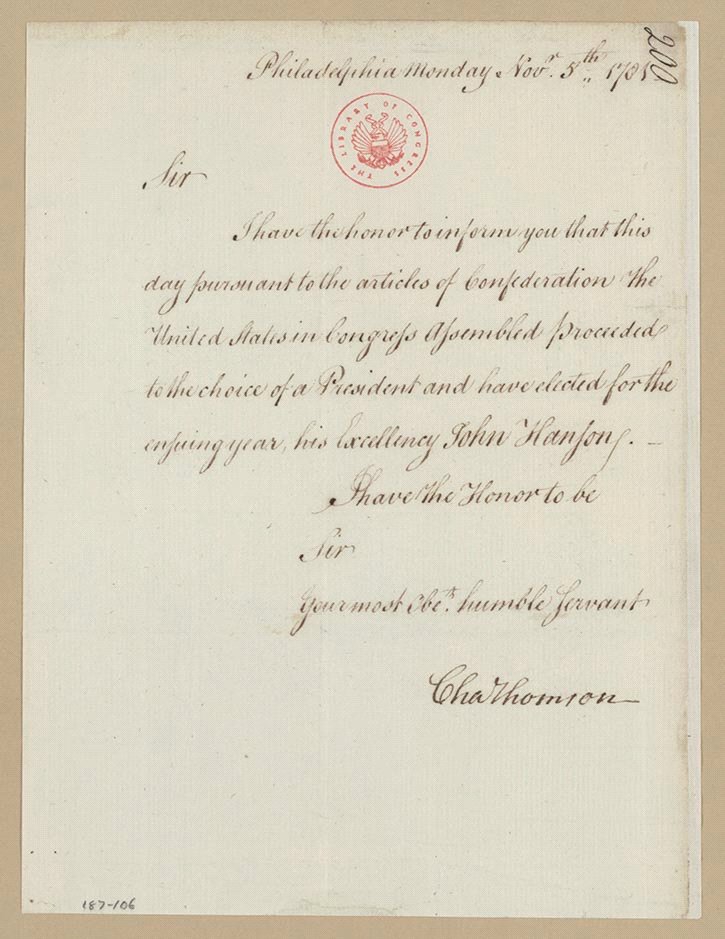 200
Philadelphia Monday Novr. 5th. 1781
THE LIBRARY OF CONGRESS
Sir
I have the honor to inform you that this
day pursuant to the articles of Confederation The
United States in Congreſs Aſsembled proceeded
to the choice of a President and have elected for the
enſuing year, his Excellency John Hanſon. –
I have the Honor to be
Sir
Your most Obet. humble Servant
Cha Thomson
187-106